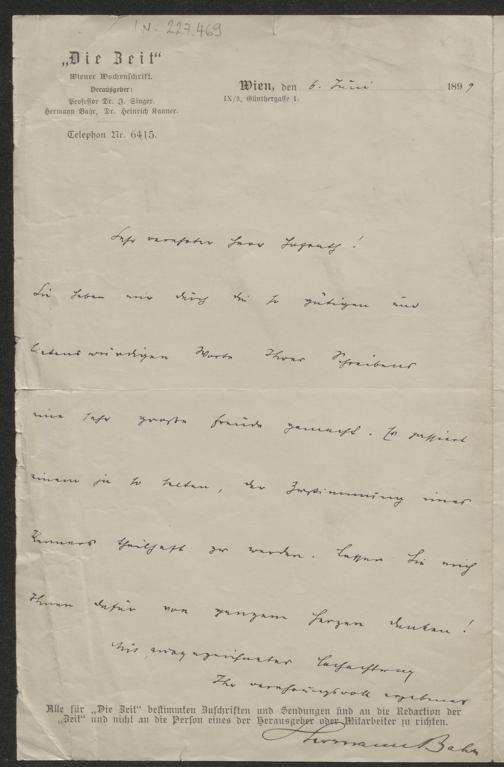 I.N. 227.469
„Die Zeit“
Wiener Wochenschrift.
Herausgeber:
Professor Dr. I. Singer.
Hermann Bahr, Dr. Heinrich Kanner.
Telephon Nr. 6415.
Wien, den 6. Juni 1899
IX/3, Günthergasse 1.
Sehr verehrter Herr Hofrath!
Sie haben mir durch die so gütigen und
liebenswürdigen Worte Ihres Schreibens
eine sehr große Freude gemacht. Es passiert
einem ja so selten, der Zustimmung eines
Kenners theilhaft zu werden. Lassen Sie mich
Ihnen dafür von ganzem Herzen danken!
Mit ausgezeichneter Hochachtung
Ihr verehrungsvoll ergebener
Hermann Bahr
Alle für „Die Zeit“ bestimmten Zuschriften und Sendungen sind an die Redaction der
„Zeit“ und nicht an die Person eines der Herausgeber oder Mitarbeiter zu richten.